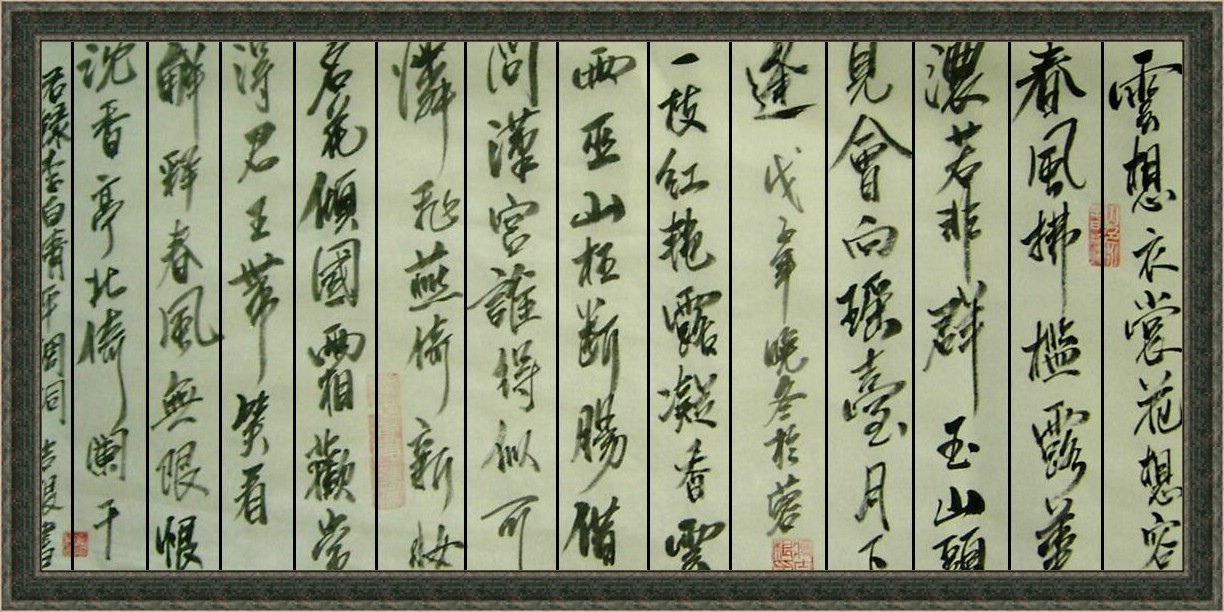 雲想衣裳花想容
春風拂檻露華
濃若非群玉山頭
見會向瑤臺月下
逢 戊子年晚冬於蓉
一枝紅艷露凝香雲
雨巫山枉斷腸借
問漢宮誰得似可
憐飛燕倚新妝
名花傾國兩相歡常
得君王帶笑看
解釋春風無限恨
沈香亭北倚闌干
右錄李白清平